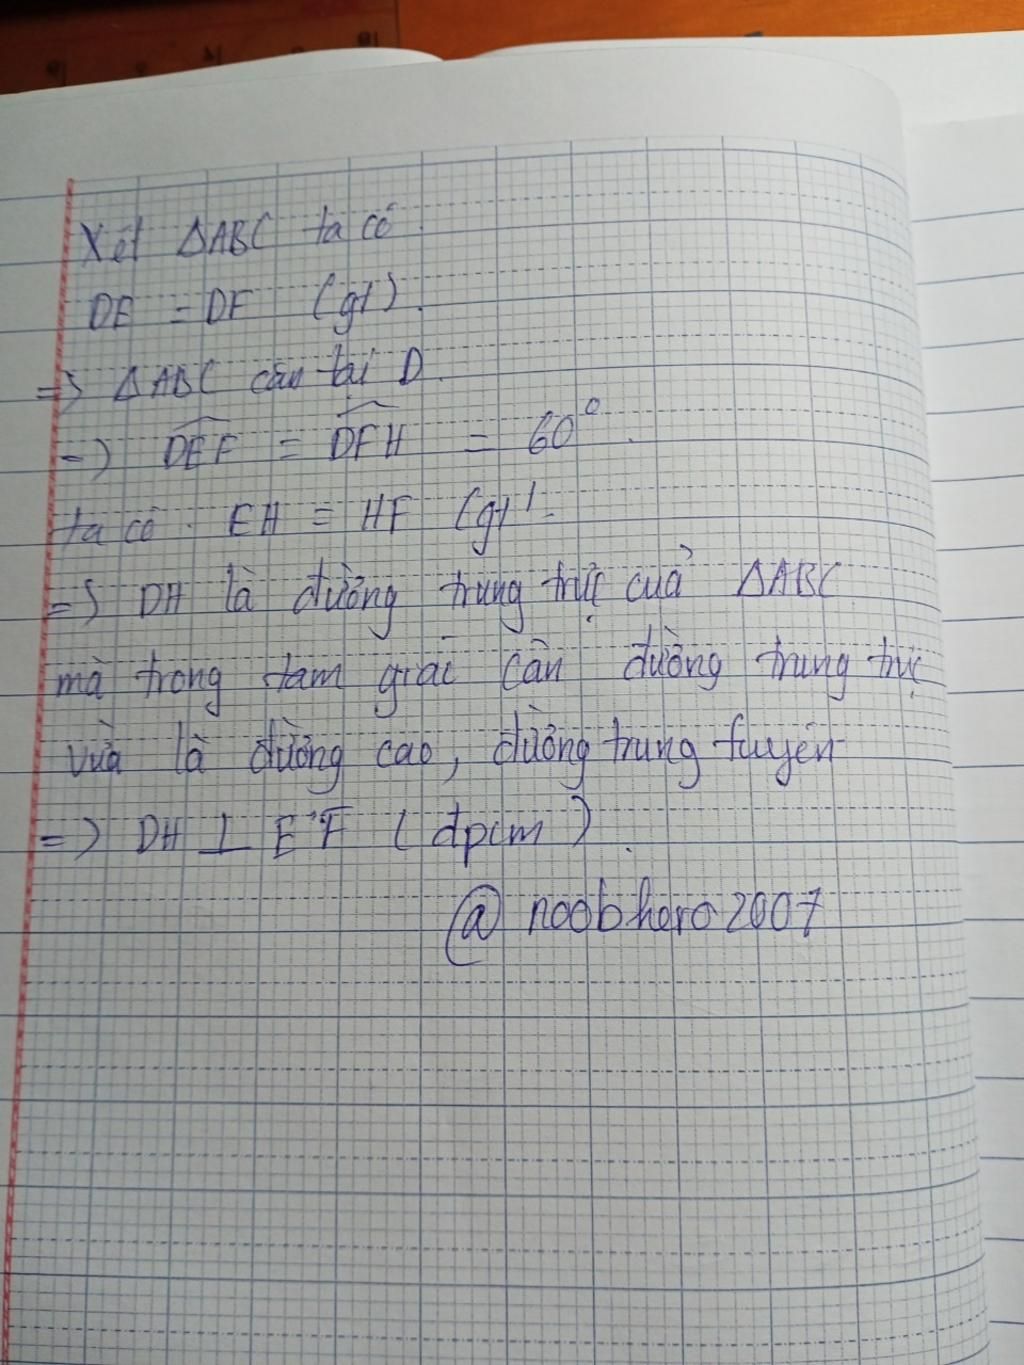 Xét ΔABC ta có
DE = DF (gt).
=> ΔABC cân tại D.
=> DEF = DFH = 60°.
ta có. EH = HF (gt).
=> DH là đường trung trực của ΔABC
mà trong tam giác cân đường trung trực
vừa là đường cao, đường trung tuyến
=> DH ⊥ EF (đpcm).
@ noobhero2007